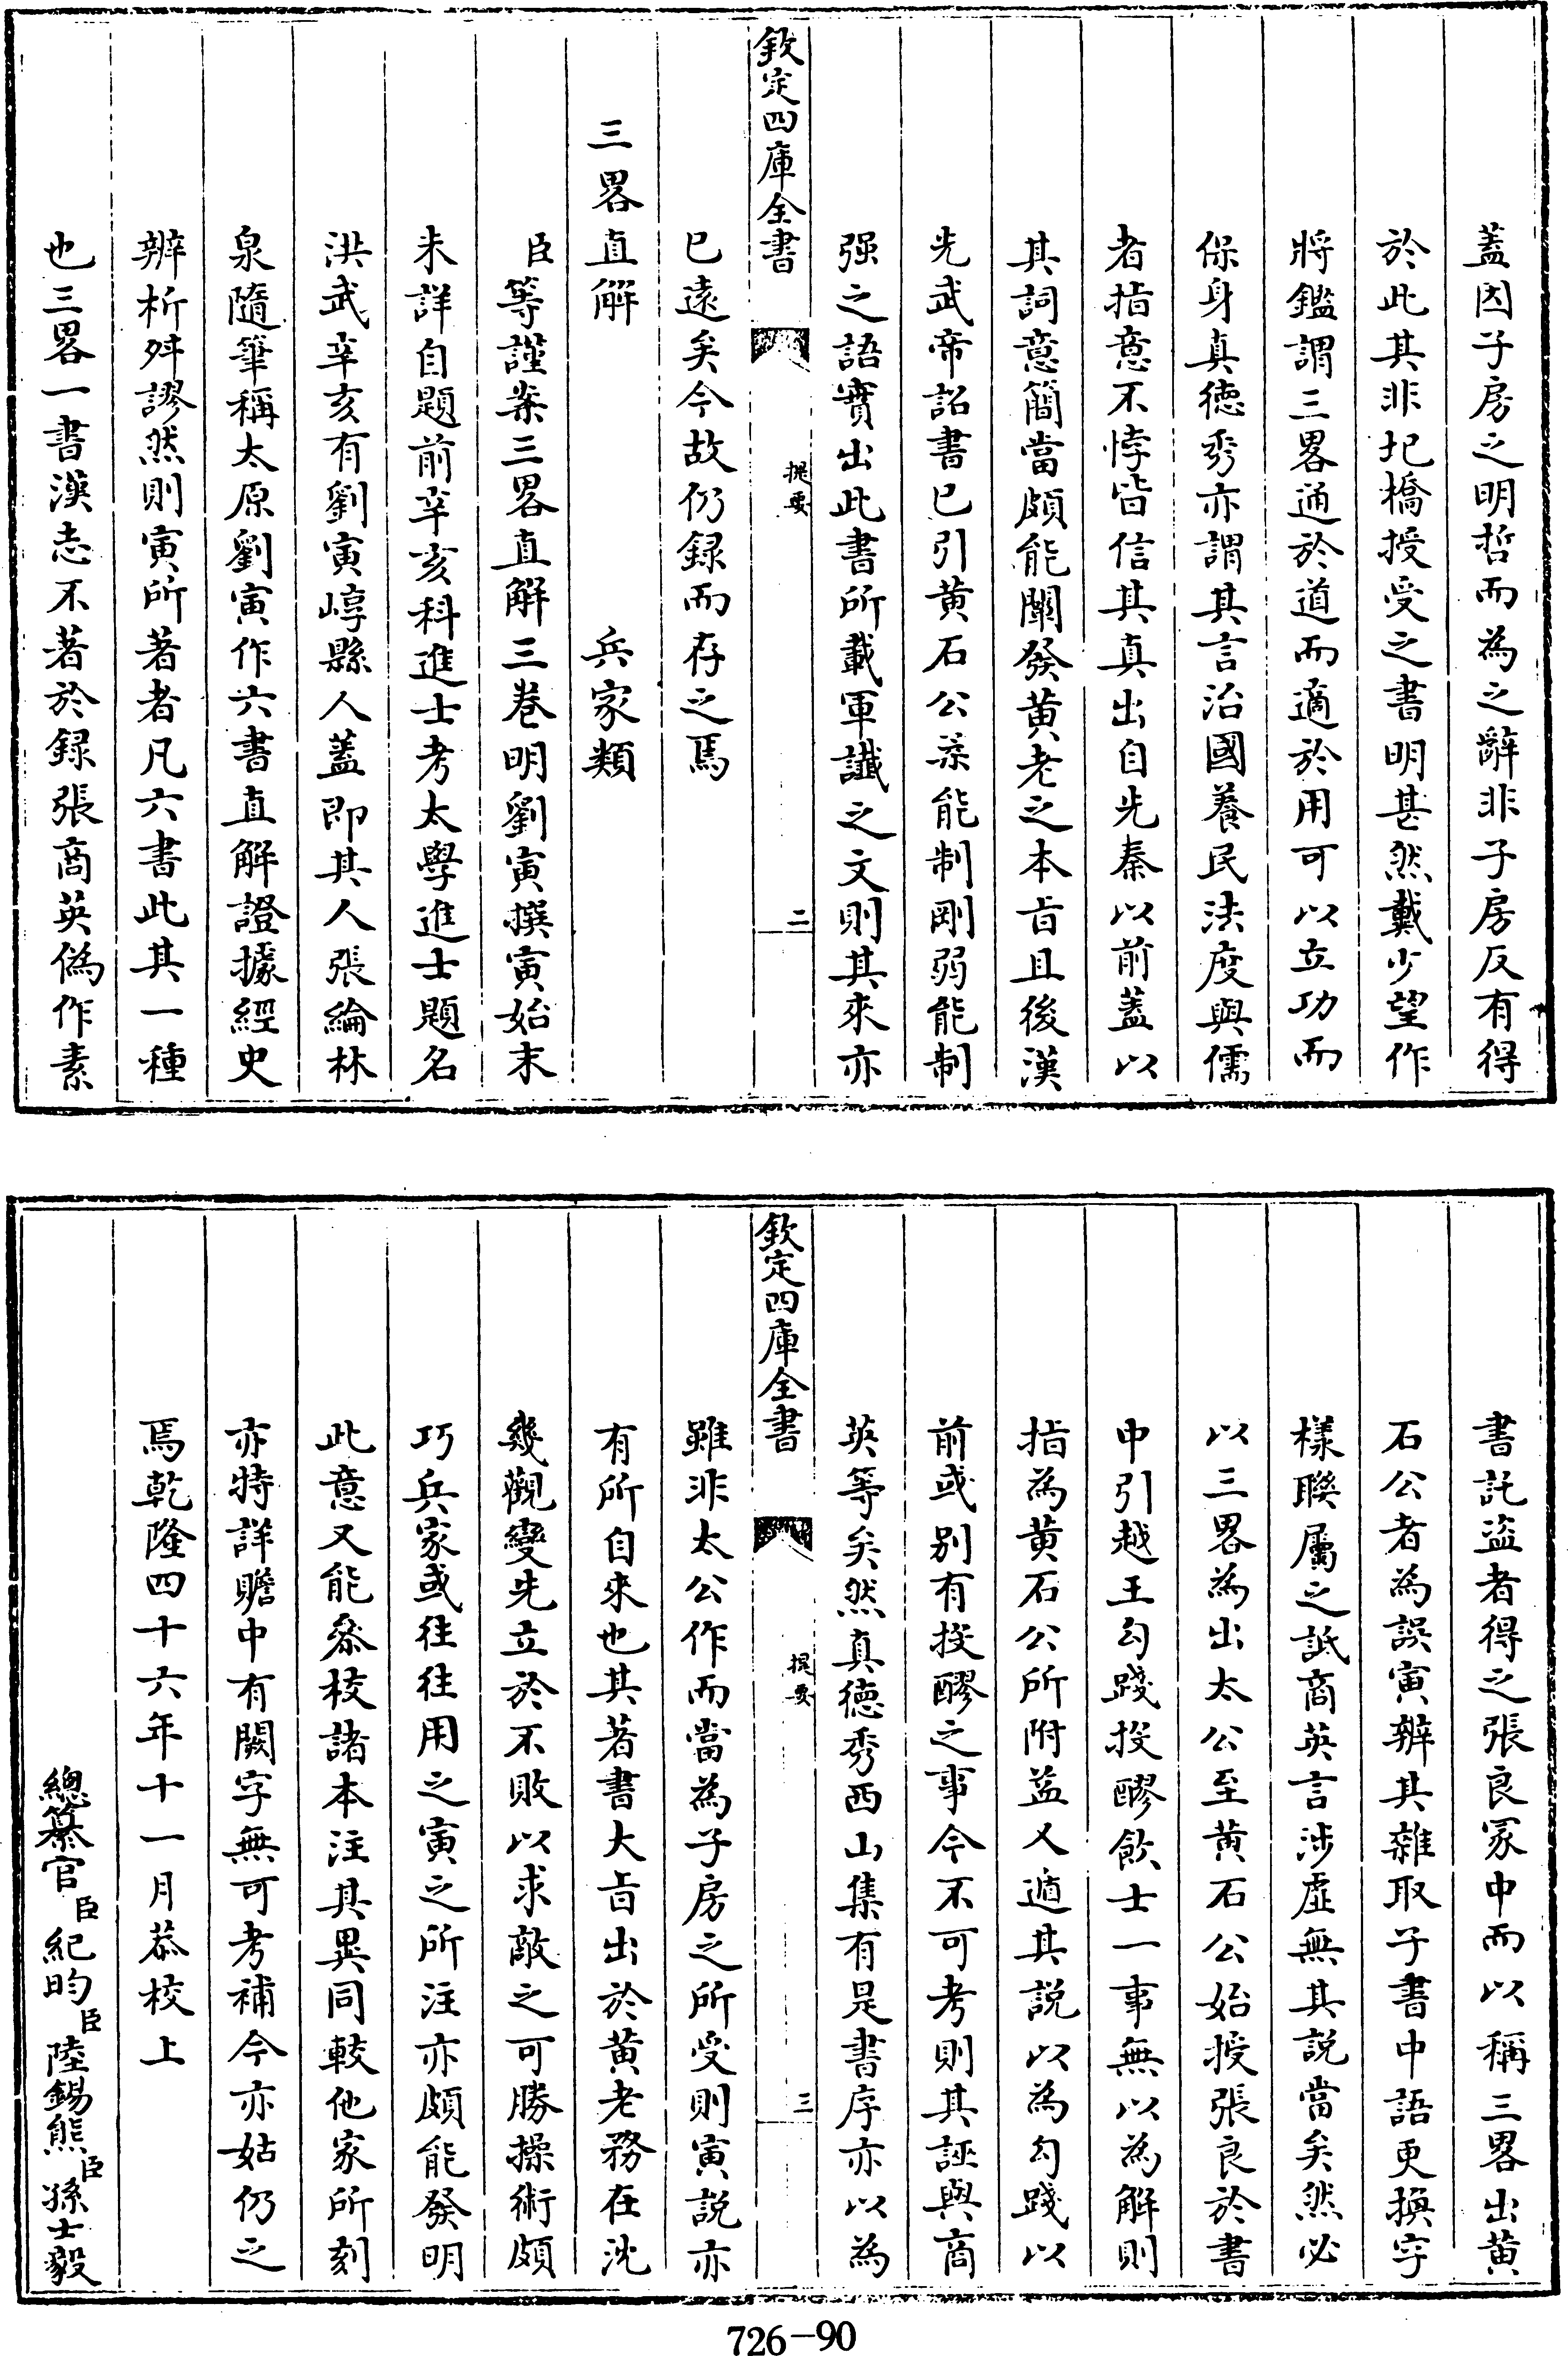 蓋因子房之明哲而為之辭非子房反有得
於此其非圯橋授受之書明甚然戴少望作
將鑑謂三畧通於道而適於用可以立功而
保身真德秀亦謂其言治國養民法度與儒
者指意不悖皆信其真出自先秦以前蓋以
其詞意簡當頗能闡發黄老之本㫖且後漢
光武帝詔書已引黄石公柔能制剛弱能制
强之語實出此書所載軍讖之文則其來亦
欽定四庫全書
提要
二
已遠矣今故仍録而存之焉
三畧直解 兵家類
臣等謹案三畧直解三巻明劉寅撰寅始末
未詳自題前辛亥科進士考太學進士題名
洪武辛亥有劉寅崞縣人蓋即其人張綸林
泉隨筆稱太原劉寅作六書直解證據經史
辨析舛謬然則寅所著者凡六書此其一種
也三畧一書漢志不著於録張商英偽作素
書託盜者得之張良冢中而以稱三畧出黄
石公者為誤寅辨其雜取子書中語更換字
樣聯屬之詆商英言涉虛無其說當矣然必
以三畧為出太公至黄石公始授張良於書
中引越王勾踐投醪飲士一事無以為解則
指為黄石公所附益又遁其説以為勾踐以
前或别有投醪之事今不可考則其誣與商
英等矣然真德秀西山集有是書序亦以為
欽定四庫全書
提要
三
雖非太公作而當為子房之所受則寅説亦
有所自來也其著書大㫖出於黄老務在沈
幾觀變先立於不敗以求敵之可勝操術頗
巧兵家或往往用之寅之所注亦頗能發明
此意又能叅校諸本注其異同較他家所刻
亦特詳贍中有闕字無可考補今亦姑仍之
焉乾隆四十六年十一月恭校上
總纂官臣紀昀臣陸錫熊臣孫士毅
726-90